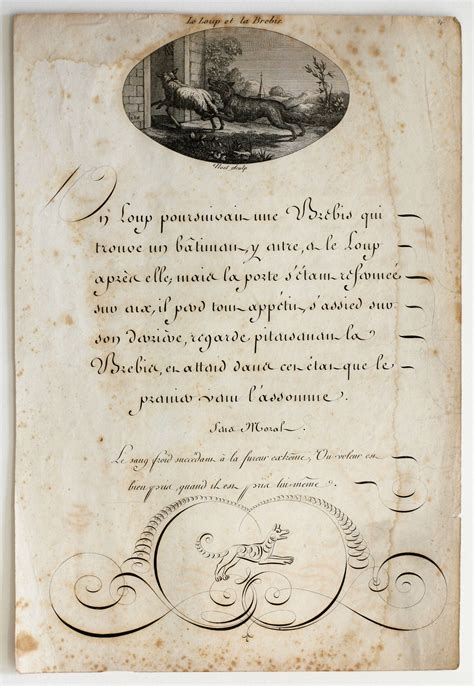 Le Loup et la Brebis.
4
sculp.
Un Loup poursuivait une Brebis qui
trouve un bâtiment, y entre, et le Loup
après elle, mais la porte s'étant refermée
sur eux, il perd tout appétit, s'assied sur
son derrière, regarde piteusement la
Brebis, et attend dans cet état que le
premier vient l'assomme.
Sens Moral.
Le sang froid succédant à la fureur extrême, Un voleur est
bien pris, quand il est pris lui même.